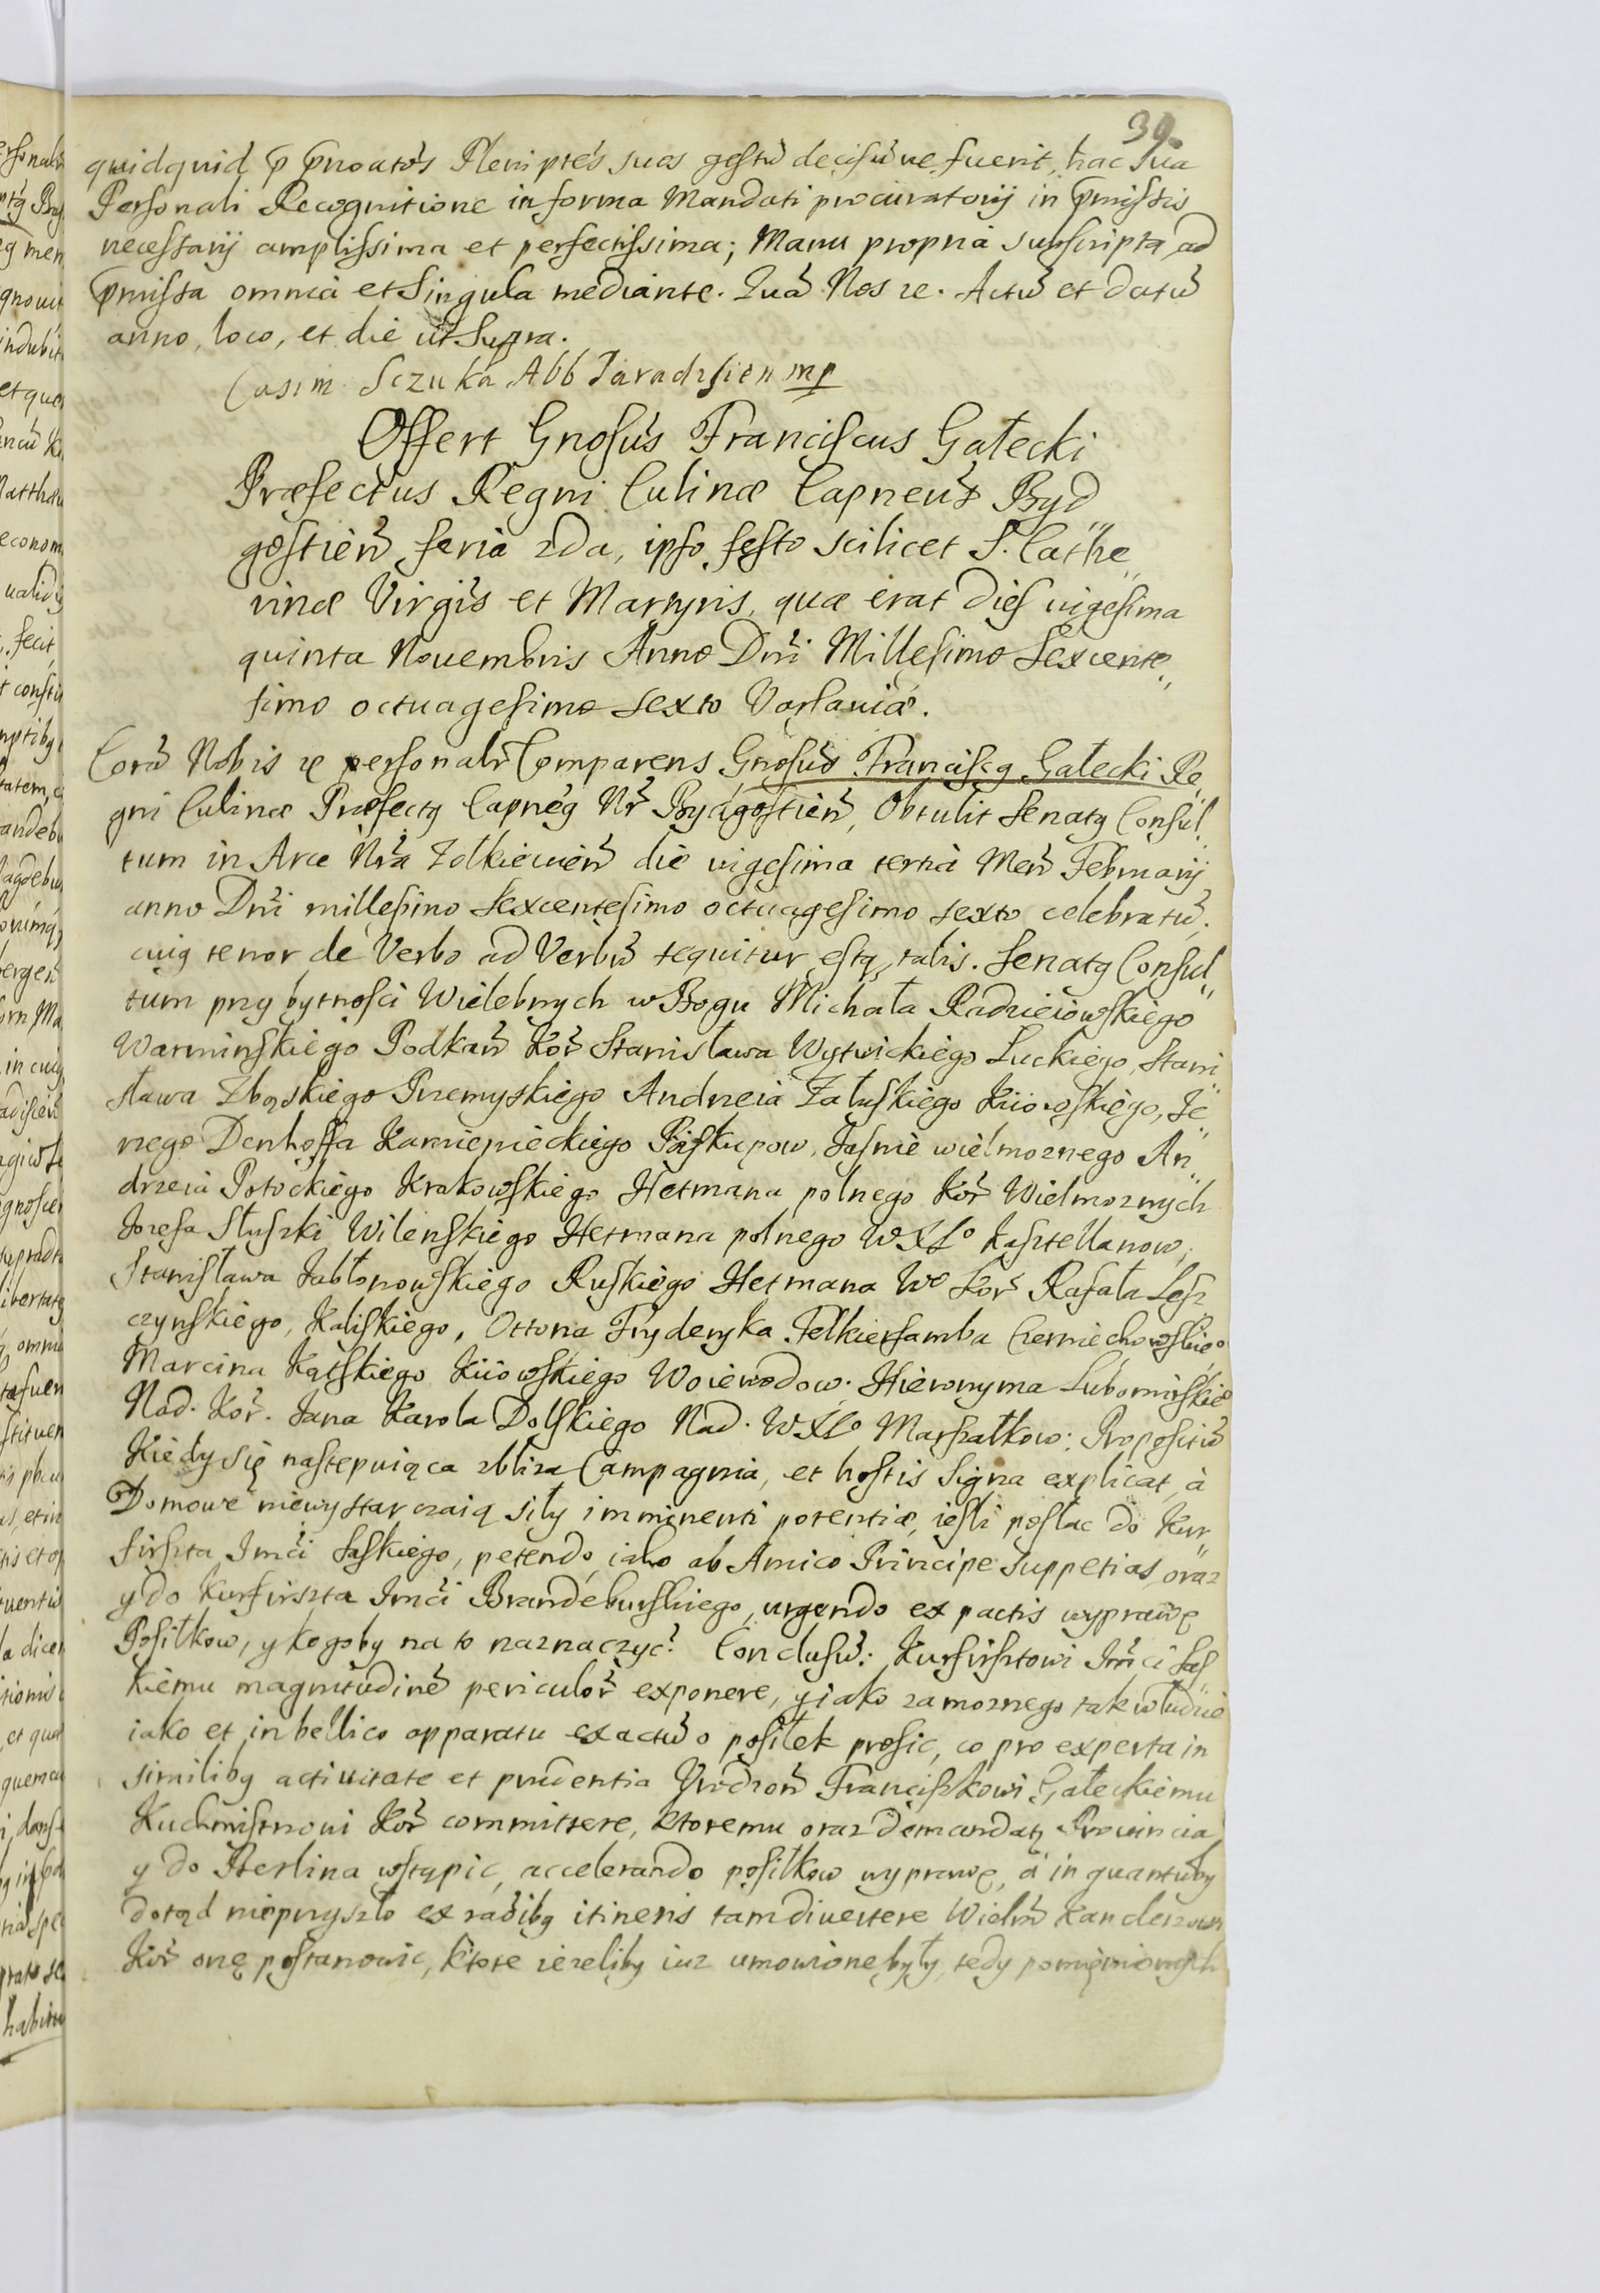 39.
quidquid p pnoatos Pleniptes suos gestu decisuue fuerit, hac sua
Personali Recognitione in forma Mandati procuratorij in pmissis
necessarij amplissima et perfectissima; Manu propria subscripta ad
pmissa omnia et Singula mediante. Qua Nos re. Actu et datu
anno, loco, et die ut Supra.
Casim Sczuka Abb Paradisien mp
Offert Gnosus Franciscus Gałecki
Præfectus Regni Culinæ Capneus Byd
gostien feria 2da, ipso festo scilicet S. Cathe„
rinæ Virgis et Martyris, quæ erat dies uigesima
quinta Nouembris Anno Dni Millesimo Sexcente„
simo octuagesimo sexto Varsauiæ.
Cora Nobis re personalr Comparens Gnosus Franciscq Gałecki Re„
gni Culinæ Præfectq Capneq Nr Bydgostien, Obtulit Senatq Consul„
tum in Arce Nra Zolkieuien die uigesima tertia Men Februarij
anno Dni millesimo sexcentesimo octuagesimo sexto celebratu,
cuiq tenor de Verbo ad Verbu sequitur estq talis. Senatq Consul„
tum przy bytnosci Wielebnych w Bogu Michała Radzieiowskiego
Warminskiego Podkan Kor Stanisława Wytwickiego Łuckiego, Stani„
sława Zbąskiego Przemyskiego Andrzeia Załuskiego Kiiowskiego, Je„
rzego Denhoffa Kamienieckiego Biskupow, Jasnie wielmoznego An„
drzeia Potockiego Krakowskiego Hetmana polnego Kor Wielmoznych
Jozefa Słuszki Wilenskiego Hetmana polnego WXLo Kasztellanow,
Stanisława Jabłonowskiego Ruskiego Hetmana Wo Kor Rafała Lesz„
czynskiego, Kaliskiego, Ottona Fryderyka Felkiersamba Czerniechowskieo
Marcina Kątskiego Kiiowskiego Woiewodow. Hieronyma Lubomirskieo
Nad. Kor. Jana Karola Dolskiego Nad. WXLo Marszałkow: Propositiu
Kiedy się nastepuiąca zbliza Campagnia, et hostis Signa explicat, à
Domowe niewystarczaią siły imminenti potentiæ, iesli posłac do Kur„
firszta Jmci Saskiego, petendo, iako ab Amico Principe suppetias, oraz
y do Kurfirszta Jmci Brandeburskiego, urgendo ex pactis wyprawę
Posiłkow, y kogoby na to naznaczyc? Conclusu: Kurfirsztowi Jmci Sas„
kiemu magnitudine periculor exponere, y iako zamoznego tak w ludzie
iako et in bellico apparatu exactu o posiłek prosic, co pro experta in
similibq actiuitate et prudentia Vrodzon Franciszkowi Gałeckiemu
Kuchmistrzoui Kor committere, ktoremu oraz demandatq Prouincia,
y do Berlina wstąpic, accelerando posiłkow wyprawę, à in quantuby
dotąd nieprzyszło ex raoibq itineris tam diuertere Wielm Kanclerzowi
Kor onę postanowic, ktore iezeliby iuz umowione były, tedy pomięnionych